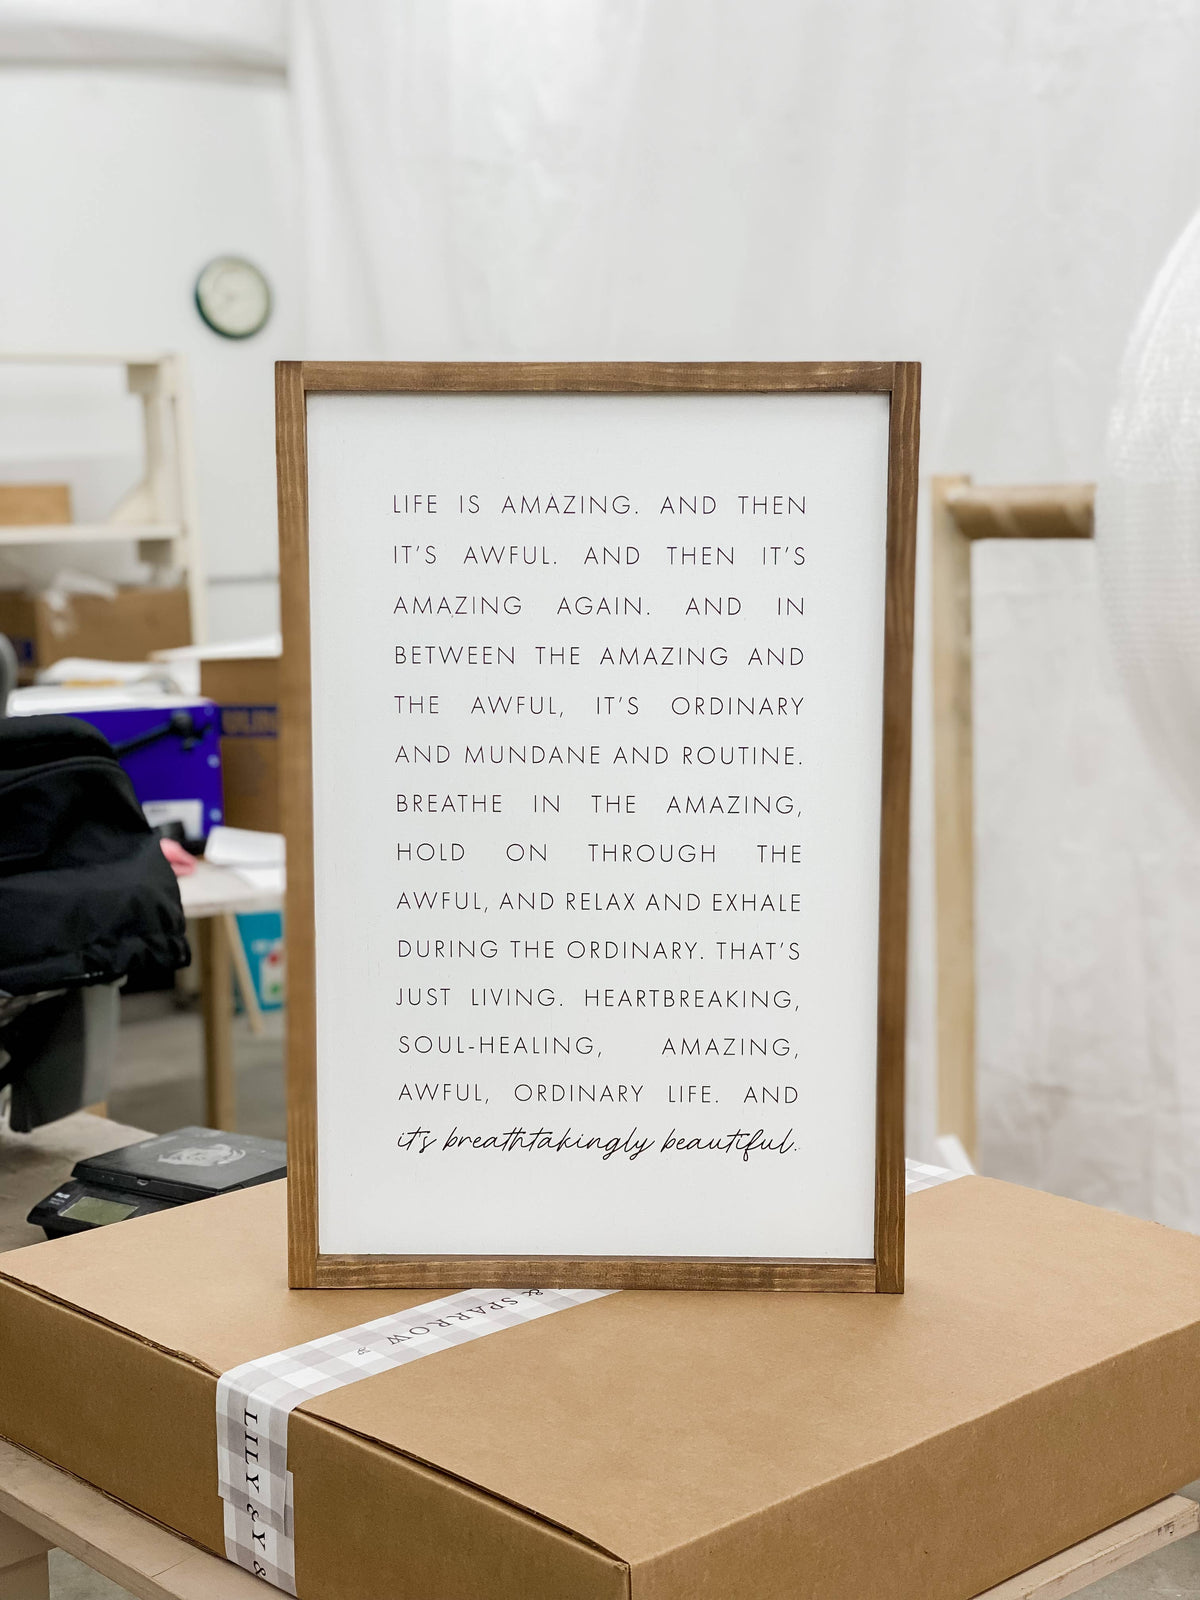 LIFE IS AMAZING. AND THEN
IT'S AWFUL. AND THEN IT'S
AMAZING AGAIN. AND IN
BETWEEN THE AMAZING AND
THE AWFUL, IT'S ORDINARY
AND MUNDANE AND ROUTINE.
BREATHE IN THE AMAZING,
HOLD ON THROUGH THE
AWFUL, AND RELAX AND EXHALE
DURING THE ORDINARY. THAT'S
JUST LIVING. HEARTBREAKING,
SOUL-HEALING, AMAZING,
AWFUL, ORDINARY LIFE. AND
it's breathtakingly beautiful.
& SPARROW
LILY & Y &